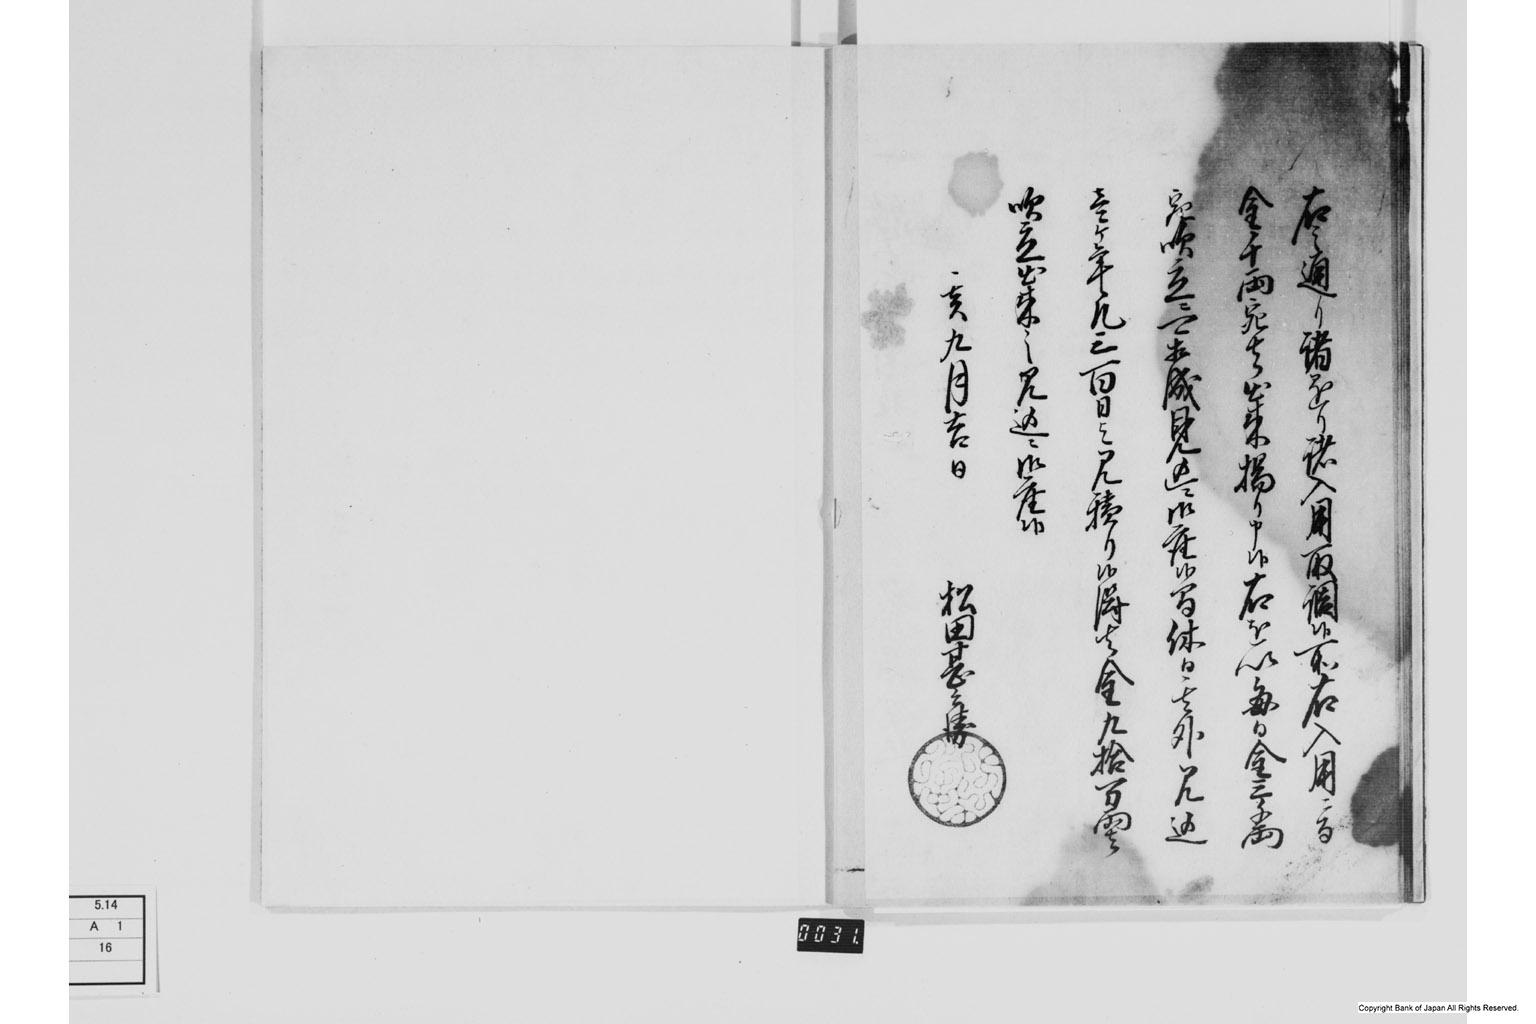 右之通り諸色り諸入用取調候所右入用ニ而
金千両宛出来揚り申候右を以毎日金三千両
宛吹立ニ而成見込ニ御座候尤休日之外見込
壱ヶ年凡三百日と見積り候得は金九拾万両
吹立出来之見込ニ御座候
亥九月吉日
松田甚之勝
5.14
A 1
16
0031.
Copyright Bank of Japan All Rights Reserved.